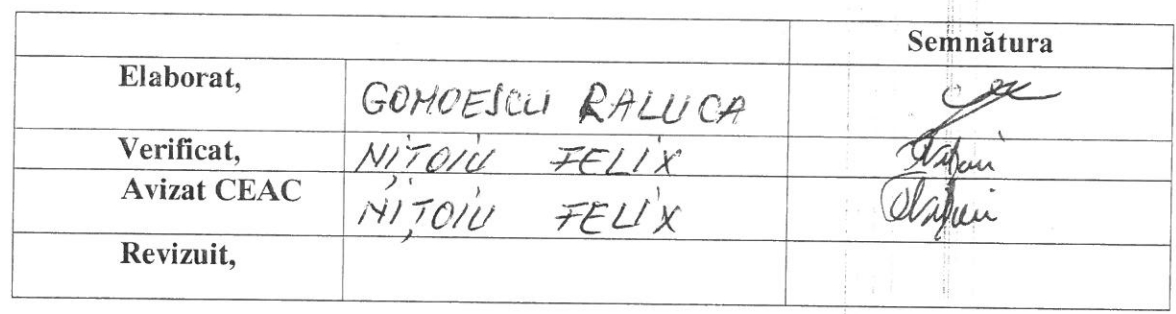 Semnătura
Elaborat, GOMOESCU RALUCA
Verificat, NIȚOIU FELIX
Avizat CEAC NIȚOIU FELIX
Revizuit,